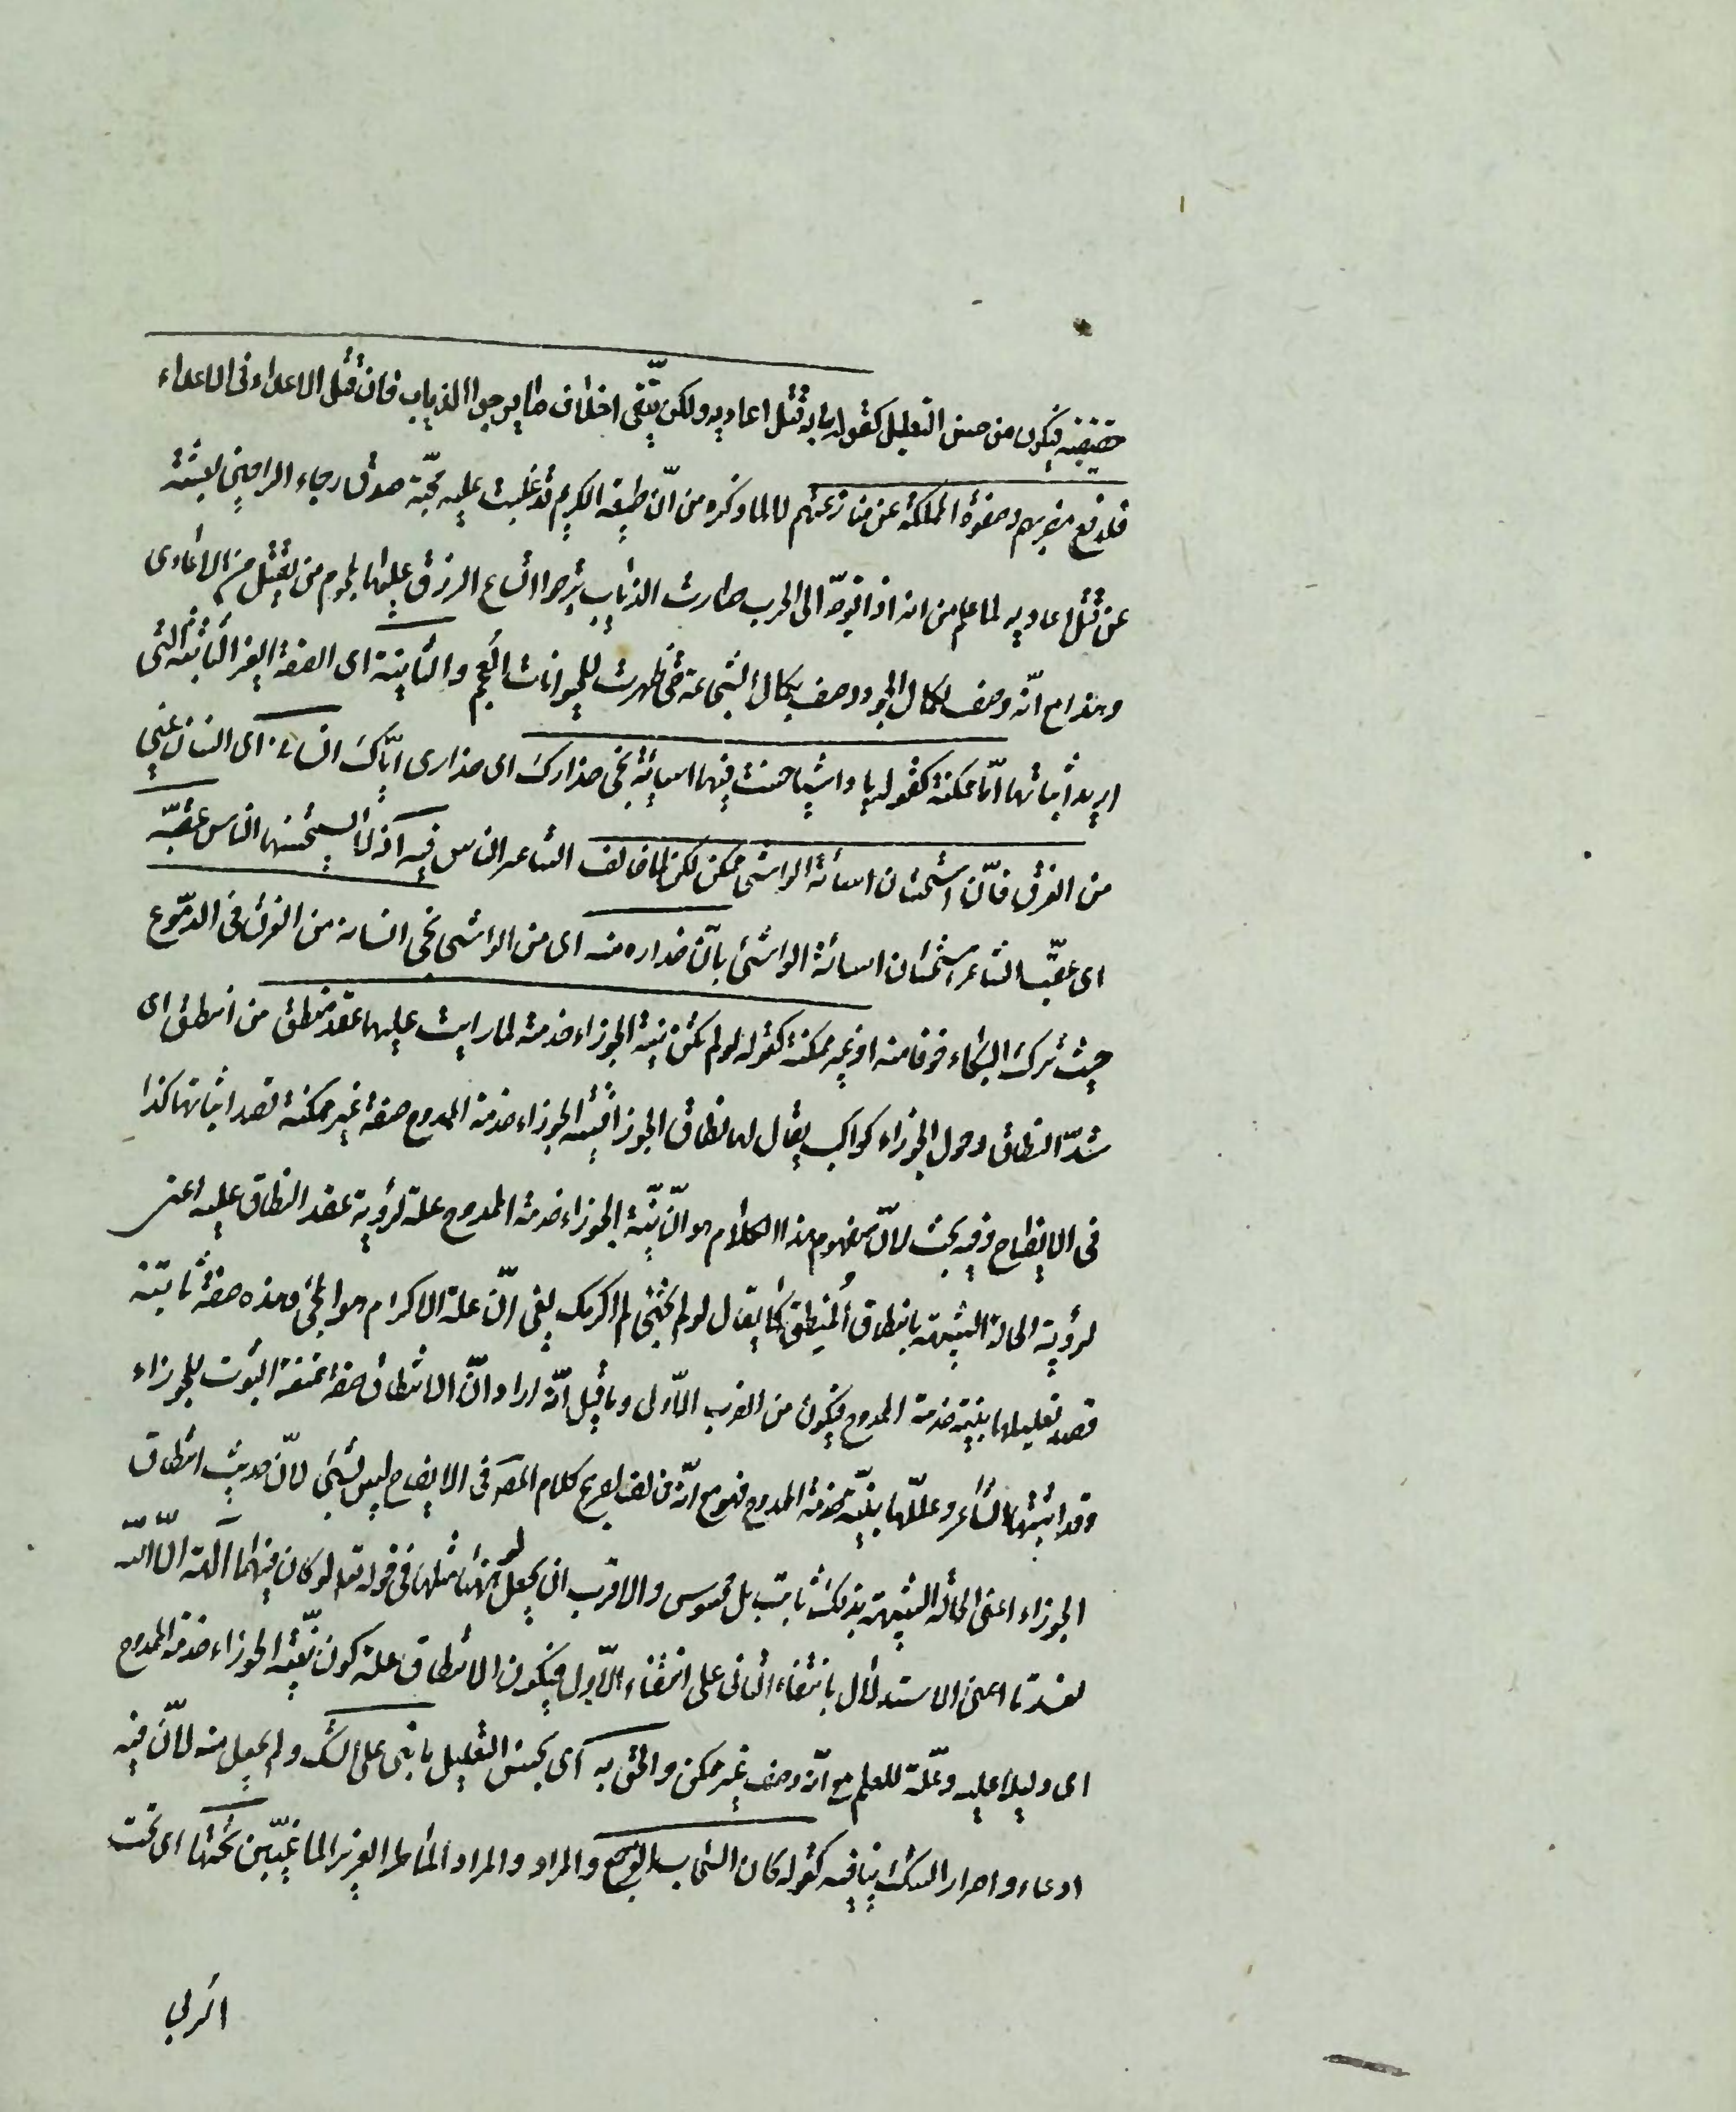 حقيقية فيكون من حسن التعليل كقوله ما به قتل اعاديه ولكن يتّقى اخلاف ما يرجوا الذياب فان قتل الاعداء فى العادة
فلدفع مضرتهم وصفوة المملكة عن منازعتهم لا لما ذكره من انّ طبيعة الكريم قد غلبت عليه ومحبّة صدق رجاء الراجين بعثته
عن قتل اعاديه لما علم من انه اذا توجّه الى الحرب صارت الذئاب يترجوا اتساع الرزق عليها بلحوم من يقتل من الاعادى
وهذا مع انّه وصف بكمال الجود وصف بكمال الشجاعة حتى ظهرت للحيوانات العجم والثانية اى الصفة الغير الثابتة التى
اريد اثباتها امّا ممكنة كقوله يا واشيا حسنت فينا اساءته نجى حذارك اى حذارى ايّاك انسانى اى انسان عينى
من الغرق فانّ استحسان اساءة الواشى ممكن لكن لمّا خالف الشاعر الناس فيه اذ لا يستحسنها الناس عقبه
اى عقّب الشاعر استحسان اساءة الواشى بانّ حذاره منه اى من الواشى نجى انسانه من الغرق فى الدموع
حيث ترك البكاء خوفا منه او غير ممكنة كقوله لو لم تكن نية الجوزاء خدمته لما رايت عليها عقد منتطق من انتطق اى
شدّ النطاق وحول الجوزاء كواكب يقال لها نطاق الجوزا فنية الجوزاء خدمة الممدوح صفة غير ممكنة قصد اثباتها كذا
فى الايضاح وفيه بحث لانّ مفهوم هذا الكلام هو انّ نيّة الجوزاء خدمة الممدوح علة لرؤية عقد النطاق عليه اعنى
لرؤية الحالة الشبيهة بانتطاق المنتطق كما يقال لو لم تجئنى لم اكرمك يعنى انّ علة الاكرام هو المجئ وهذه صفة ثابتة
قصد تعليلها بنية خدمة الممدوح فيكون من الضرب الاوّل وما قيل انّه اراد انّ الانتطاق صفة ممتنعة الثبوت للجوزاء
وقد اثبتها الشاعر وعلّلها بنيّة خدمة الممدوح فهو مع انّه مخالف لصريح كلام المصـ فى الايضاح ليس بشئ لانّ حديث انتطاق
الجوزاء اعنى الحالة الشبيهة بذلك ثابت بل محسوس والاقرب ان يجعل لو ههنا مثلها فى قوله تعـ لو كان فيهما آلهة الّا اللّه
لفسدتا اعنى الاستدلال بانتفاء الثانى على انتفاء الاوّل فيكون الانتطاق علة كون نيّة الجوزاء خدمة الممدوح
اى دليلا عليه وعلّة للعلم مع انّه وصف غير ممكن والحق به اى بحسن التعليل ما بنى على الشك ولم يجعل منه لانّ فيه
ادعاء واصرار الشك ينافيه كقوله كان السحاب الغر جمع والمراد والمراد الماطر الغزير الماء غيّبن تحتها اى تحت
الربى